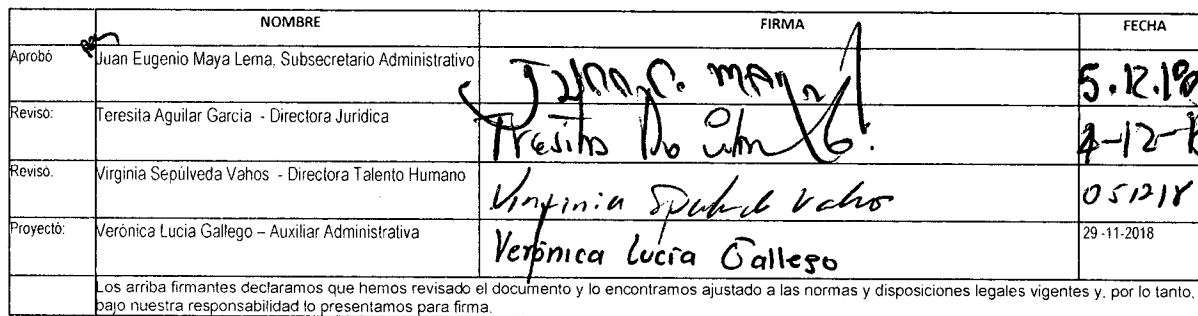 NOMBRE FIRMA FECHA
Aprobó Juan Eugenio Maya Lema, Subsecretario Administrativo 5.12.18
Revisó: Teresita Aguilar Garcia - Directora Jurídica Teresita 4-12-18
Revisó. Virginia Sepúlveda Vahos - Directora Talento Humano Virginia Vahos 051218
Proyectó: Verónica Lucia Gallego – Auxiliar Administrativa Verónica Lucía Gallego 29-11-2018
Los arriba firmantes declaramos que hemos revisado el documento y lo encontramos ajustado a las normas y disposiciones legales vigentes y, por lo tanto,
bajo nuestra responsabilidad lo presentamos para firma.